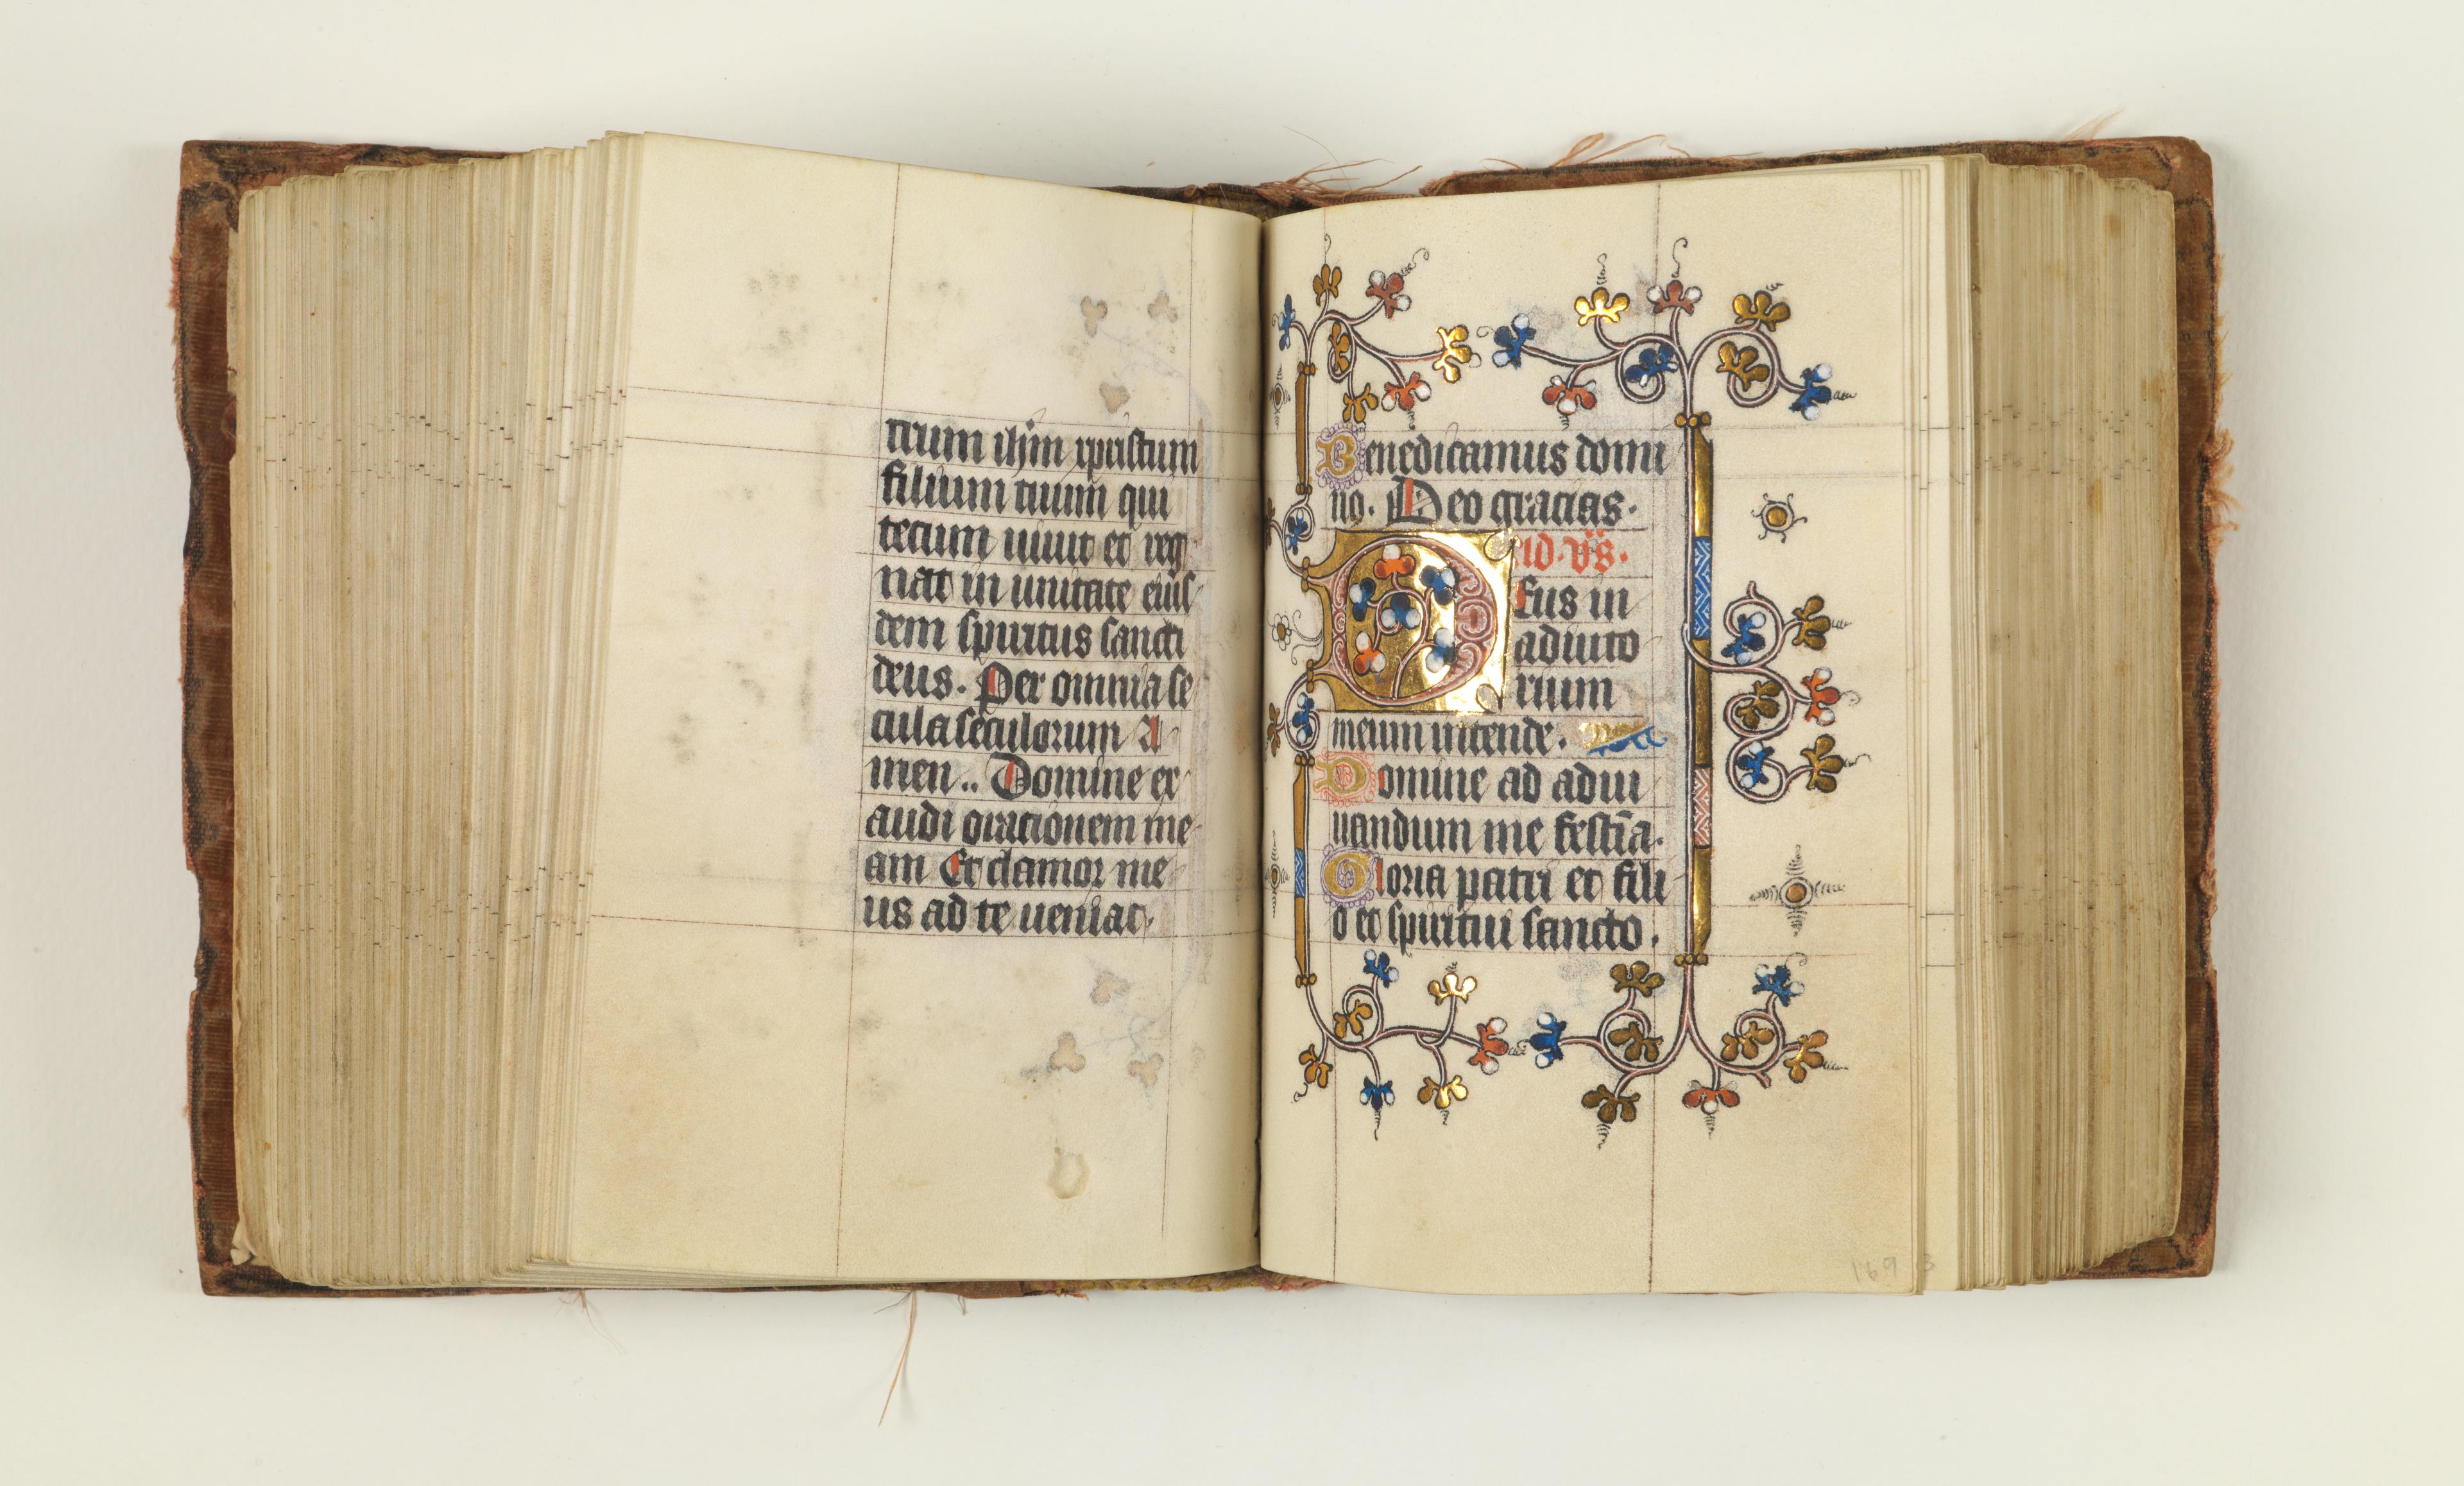 trum ihm xpristum
filium tuum qui
tecum uiuit et reg
nat in unitate eius
dem spiritus sancti
deus. Per omnia se
cula seculorum A
men.. Domine ex
audi orationem me
am Et clamor me
us ad te ueniat.
Benedicamus domi
no. Deo gracias.
ad. vs.
Deus in
adiuto
rium
meum intende.
Domine ad adiu
uandum me festia.
Gloria patri et fili
o et spiritui sancto.
169